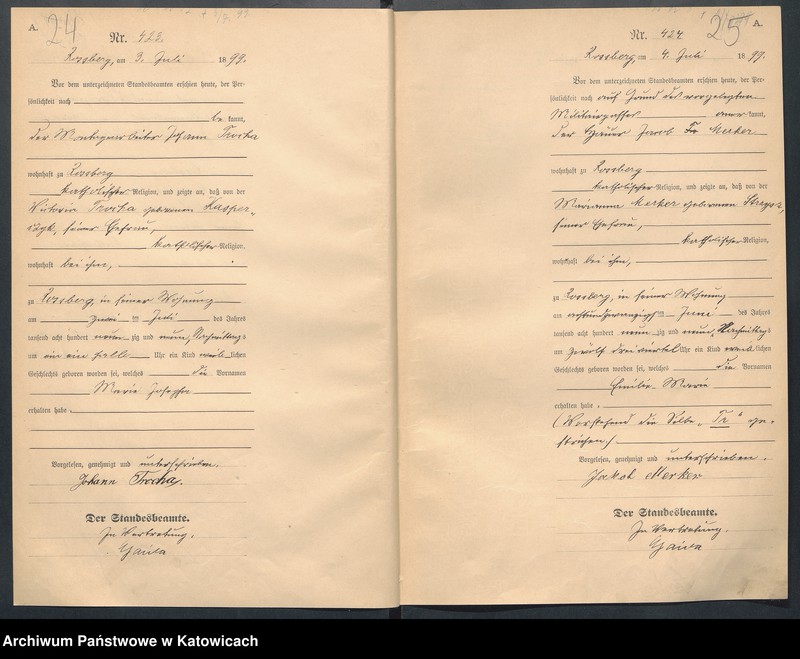 A.
24
Nr. 423.
Rossberg, am 3. Juli 1899.
Vor dem unterzeichneten Standesbeamten erschien heute, der Per-
sönlichkeit nach
be kannt,
der Johann Trocha
wohnhaft zu Rossberg
katholischer Religion, und zeigte an, daß von der
Victoria Trocha geborenen
seiner Ehefrau,
katholischer Religion,
wohnhaft bei ihm,
zu Rossberg, in seiner Wohnung
am Juli des Jahres
tausend acht hundert neunzig und neun, Nachmittags
um ein ein halb Uhr ein Kind weiblichen
Geschlechts geboren worden sei, welches die Vornamen
Marie Josepha
erhalten habe.
Vorgelesen, genehmigt und unterschrieben.
Johann Trocha.
Der Standesbeamte.
In Vertretung.
A.
25
Nr. 424
Rossberg, am 4. Juli 1899.
Vor dem unterzeichneten Standesbeamten erschien heute, der Per-
sönlichkeit nach auf Grund des vorgelegten
Militairpasses aner kannt,
der Hauer Jacob Tr Merker
wohnhaft zu Rossberg
katholischer Religion, und zeigte an, daß von der
Marianna Merker geborenen
seiner Ehefrau,
katholischer Religion,
wohnhaft bei ihm,
zu Rossberg, in seiner Wohnung
am achtundzwanzigsten Juni des Jahres
tausend acht hundert neunzig und neun, Nachmittags
um zwölf dreiviertel Uhr ein Kind weiblichen
Geschlechts geboren worden sei, welches die Vornamen
Emilie Marie
erhalten habe.
(Vorstehend die Silbe „Tr“ ge-
strichen)
Vorgelesen, genehmigt und unterschrieben.
Jakob Merker
Der Standesbeamte.
In Vertretung.
Archiwum Państwowe w Katowicach